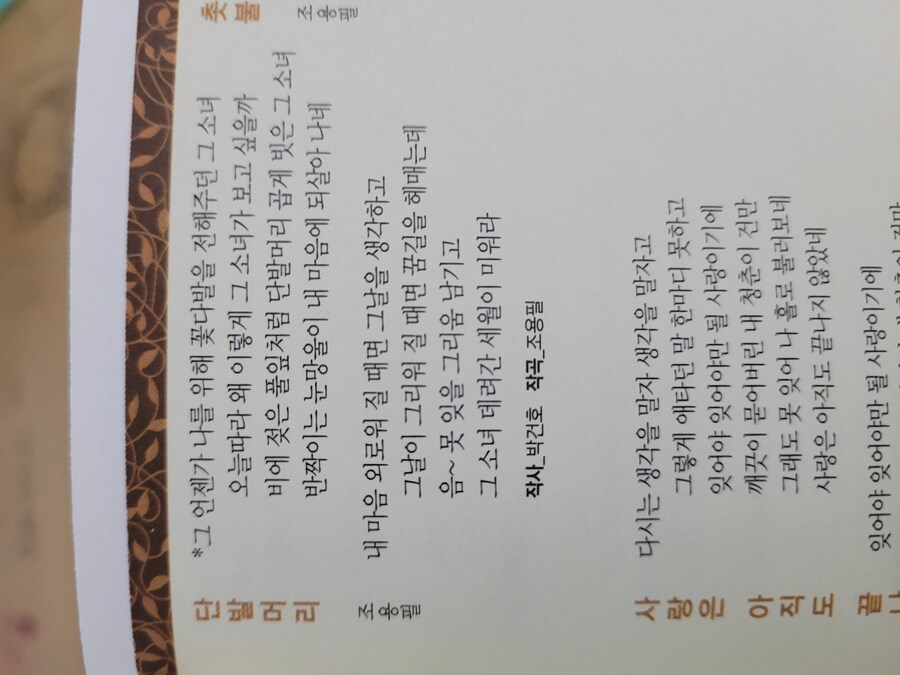 단발머리
조용필
*그 언젠가 나를 위해 꽃다발을 전해주던 그 소녀
오늘따라 왜 이렇게 그 소녀가 보고 싶을까
비에 젖은 풀잎처럼 단발머리 곱게 빗은 그 소녀
반짝이는 눈망울이 내 마음에 되살아 나네
내 마음 외로워 질 때면 그날을 생각하고
그날이 그리워 질 때면 꿈길을 헤매는데
음~ 못 잊을 그리움 남기고
그 소녀 데려간 세월이 미워라
작사_박건호 작곡_조용필
사랑은
아직도
다시는 생각을 말자 생각을 말자고
그렇게 애타던 말 한마디 못하고
잊어야 잊어야만 될 사랑이기에
깨끗이 묻어버린 내 청춘이 건만
그래도 못 잊어 나 홀로 불러보네
사랑은 아직도 끝나지 않았네
잊어야 잊어야만 될 사랑이기에
촛불
조용필